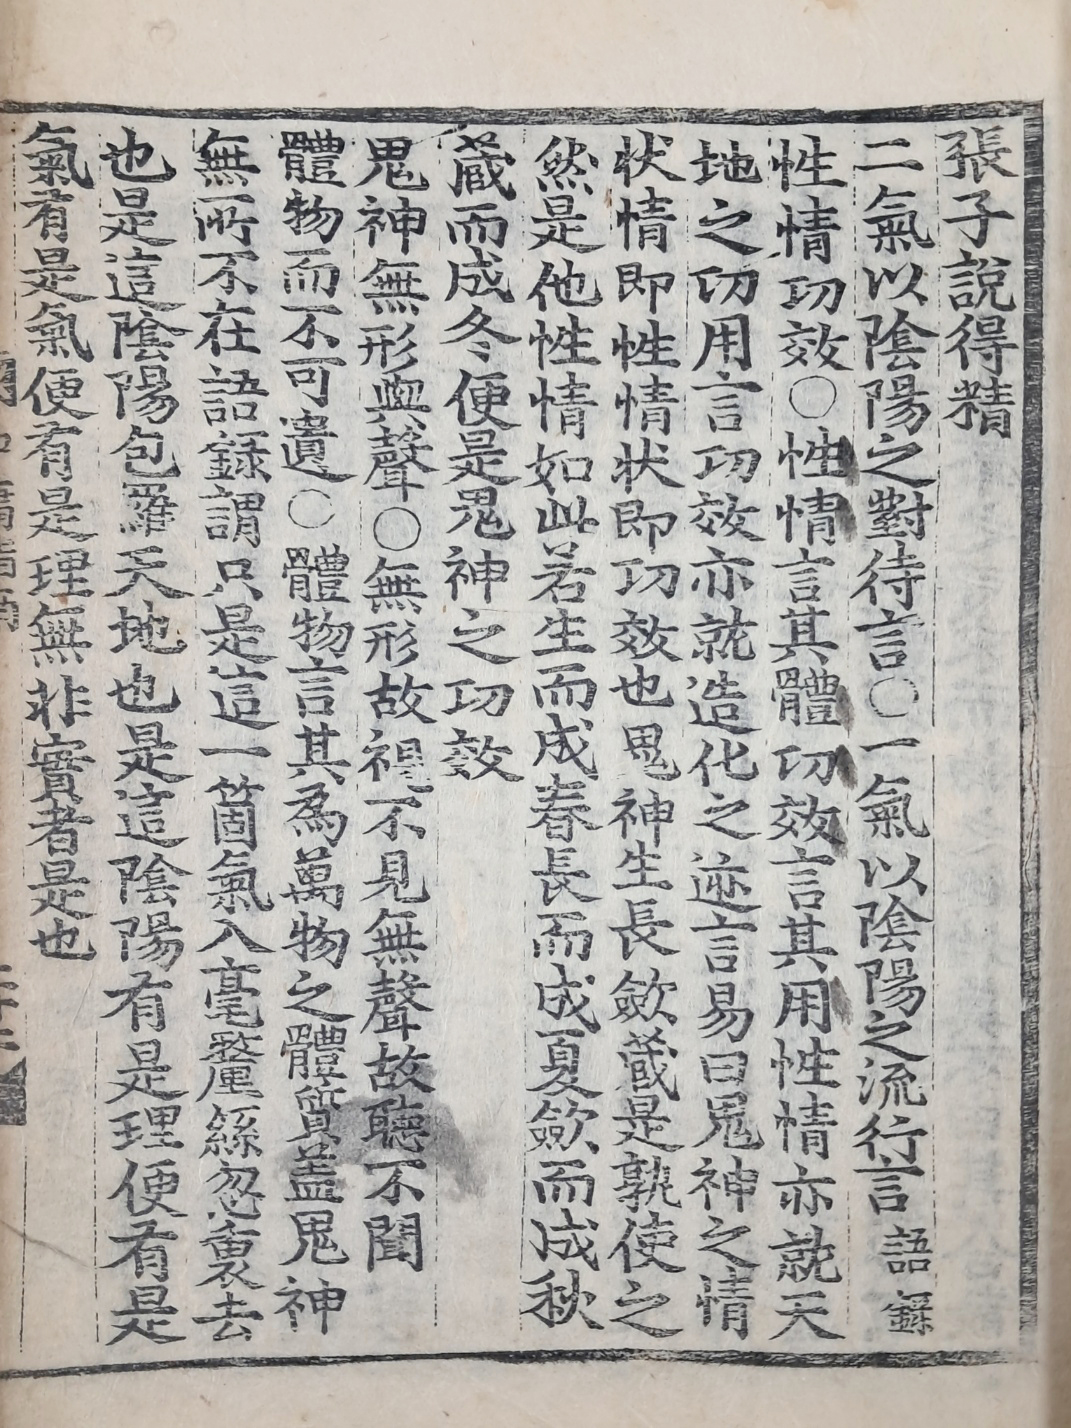 張子說得精
二氣以陰陽之對待言○一氣以陰陽之流行言語錄
性情功效○性情言其體功效言其用性情亦就天
地之功用言功效亦就造化之迹言易曰鬼神之情
状情即性情状即功效也鬼神生長斂藏是孰使之
然是他性情如此若生而成春長而成夏斂而成秋
藏而成冬便是鬼神之功效
鬼神無形與聲○無形故視不見無聲故聽不聞
體物而不可遺○體物言其為萬物之體質蓋鬼神
無所不在語錄謂只是這一箇氣入毫釐絲忽裏去
也是這陰陽包羅天地也是這陰陽有是理便有是
氣有是氣便有是理無非實者是也